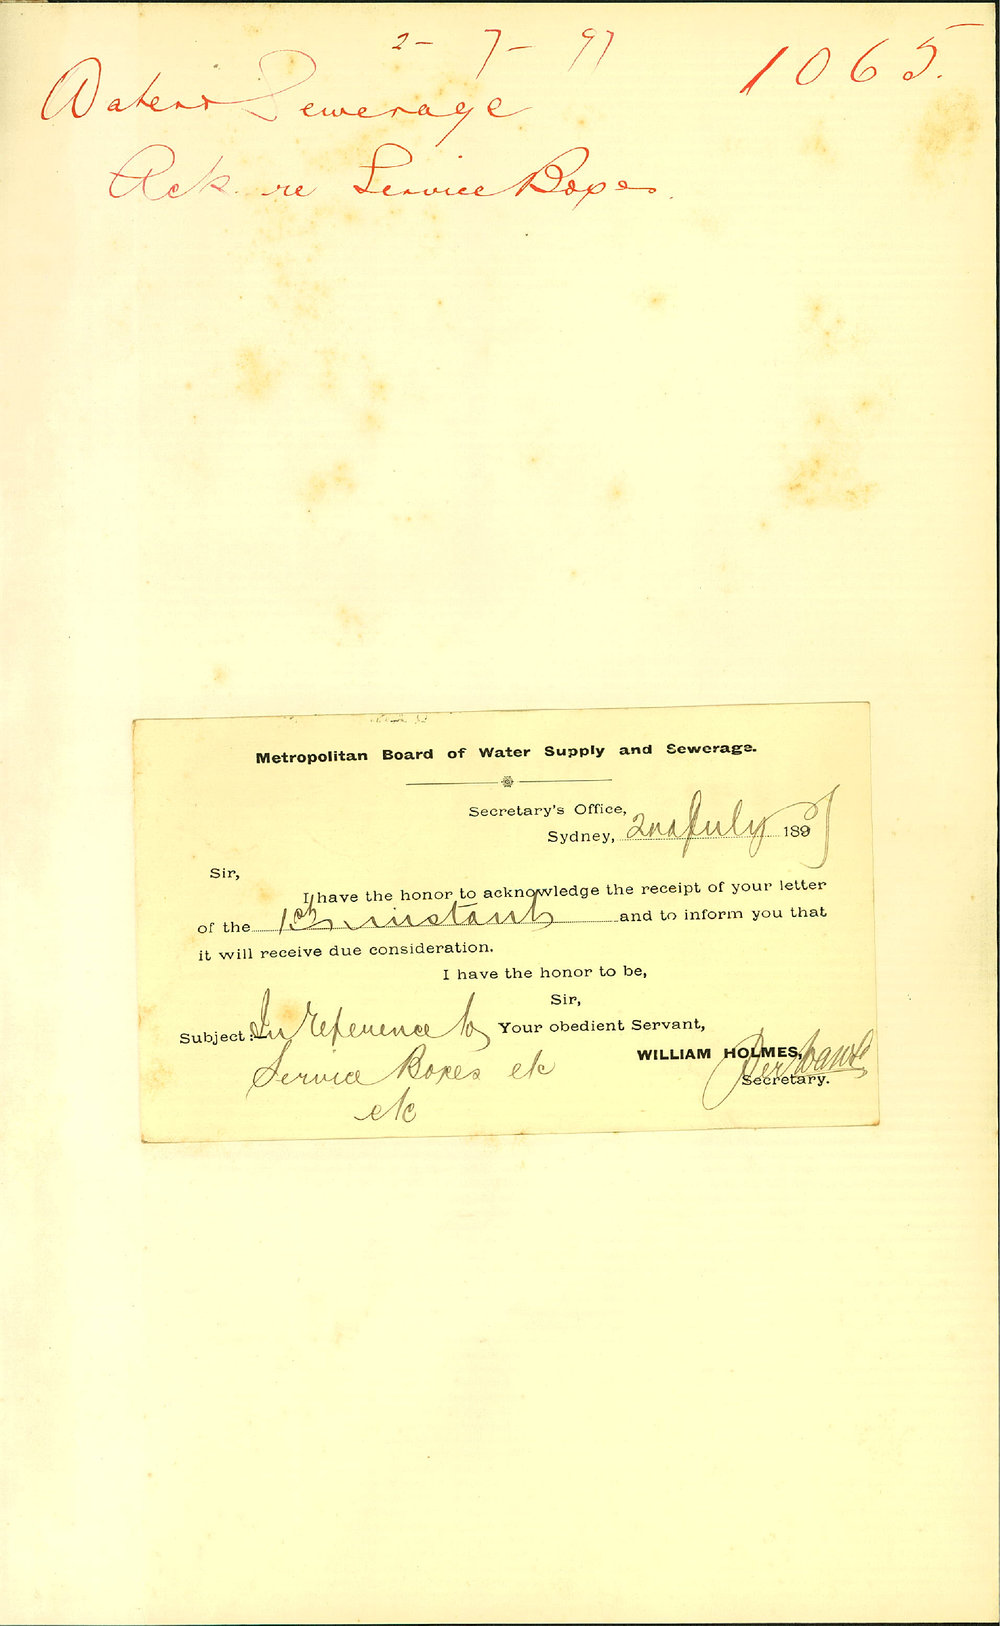 2-7-97
1065.
Water & Sewerage
Ack. re Service Boxes.
Metropolitan Board of Water Supply and Sewerage.
Secretary's Office,
Sydney, 2nd July 1897
Sir,
I have the honor to acknowledge the receipt of your letter
of the 1st instant and to inform you that
it will receive due consideration.
I have the honor to be,
Sir,
Subject: In reference to Your obedient Servant,
Service Boxes etc
etc
WILLIAM HOLMES,
Per
Secretary.